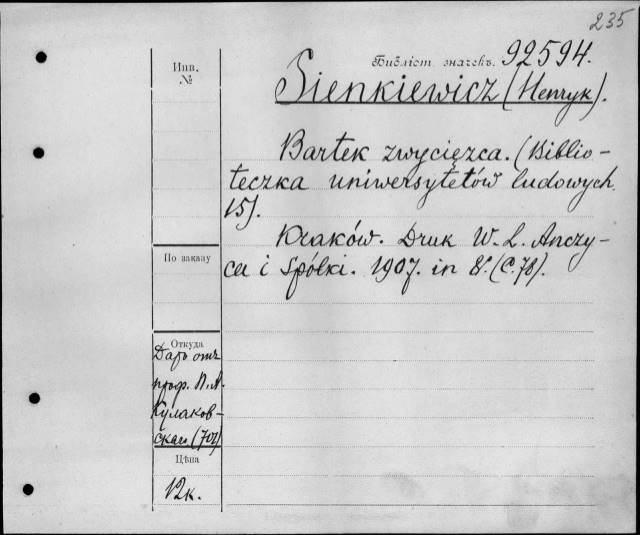 235
Библіот. значекъ. 92594.
Инв.
№
Sienkiewicz (Henryk).
Bartek zwycięzca. (Biblio-
teczka uniwersytetów ludowych
15).
Kraków. Druk W. L. Anczy-
ca i Spółki. 1907. in 8°. (C. 78).
По заказу
Откуда
Даръ отъ
проф. П. А.
Кулаков-
скаго (707)
Цѣна
12 к.